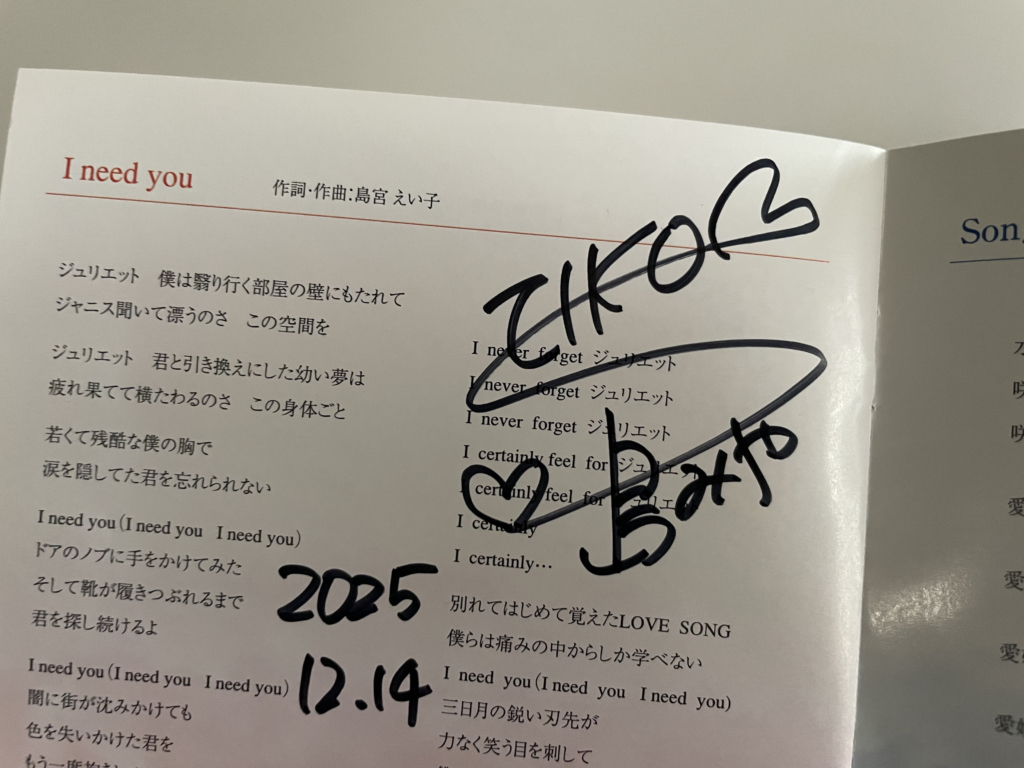 I need you
作詞・作曲:島宮 えい子
ジュリエット　僕は翳り行く部屋の壁にもたれて
ジャニス聞いて漂うのさ　この空間を
ジュリエット　君と引き換えにした幼い夢は
疲れ果てて横たわるのさ　この身体ごと
若くて残酷な僕の胸で
涙を隠してた君を忘れられない
I need you(I need you　I need you)
ドアのノブに手をかけてみた
そして靴が履きつぶれるまで
君を探し続けるよ
I need you(I need you　I need you)
闇に街が沈みかけても
色を失いかけた君を
EIKO
I never forget ジュリエット
I never forget ジュリエット
I never forget ジュリエット
I certainly feel for ジュリエット
I certainly feel for ジュリエット
I certainly
I certainly…
2025
12.14
別れてはじめて覚えたLOVE SONG
僕らは痛みの中からしか学べない
I need you(I need you　I need you)
三日月の鋭い刃先が
力なく笑う目を刺して
Son
咲
咲
愛
愛
愛
愛